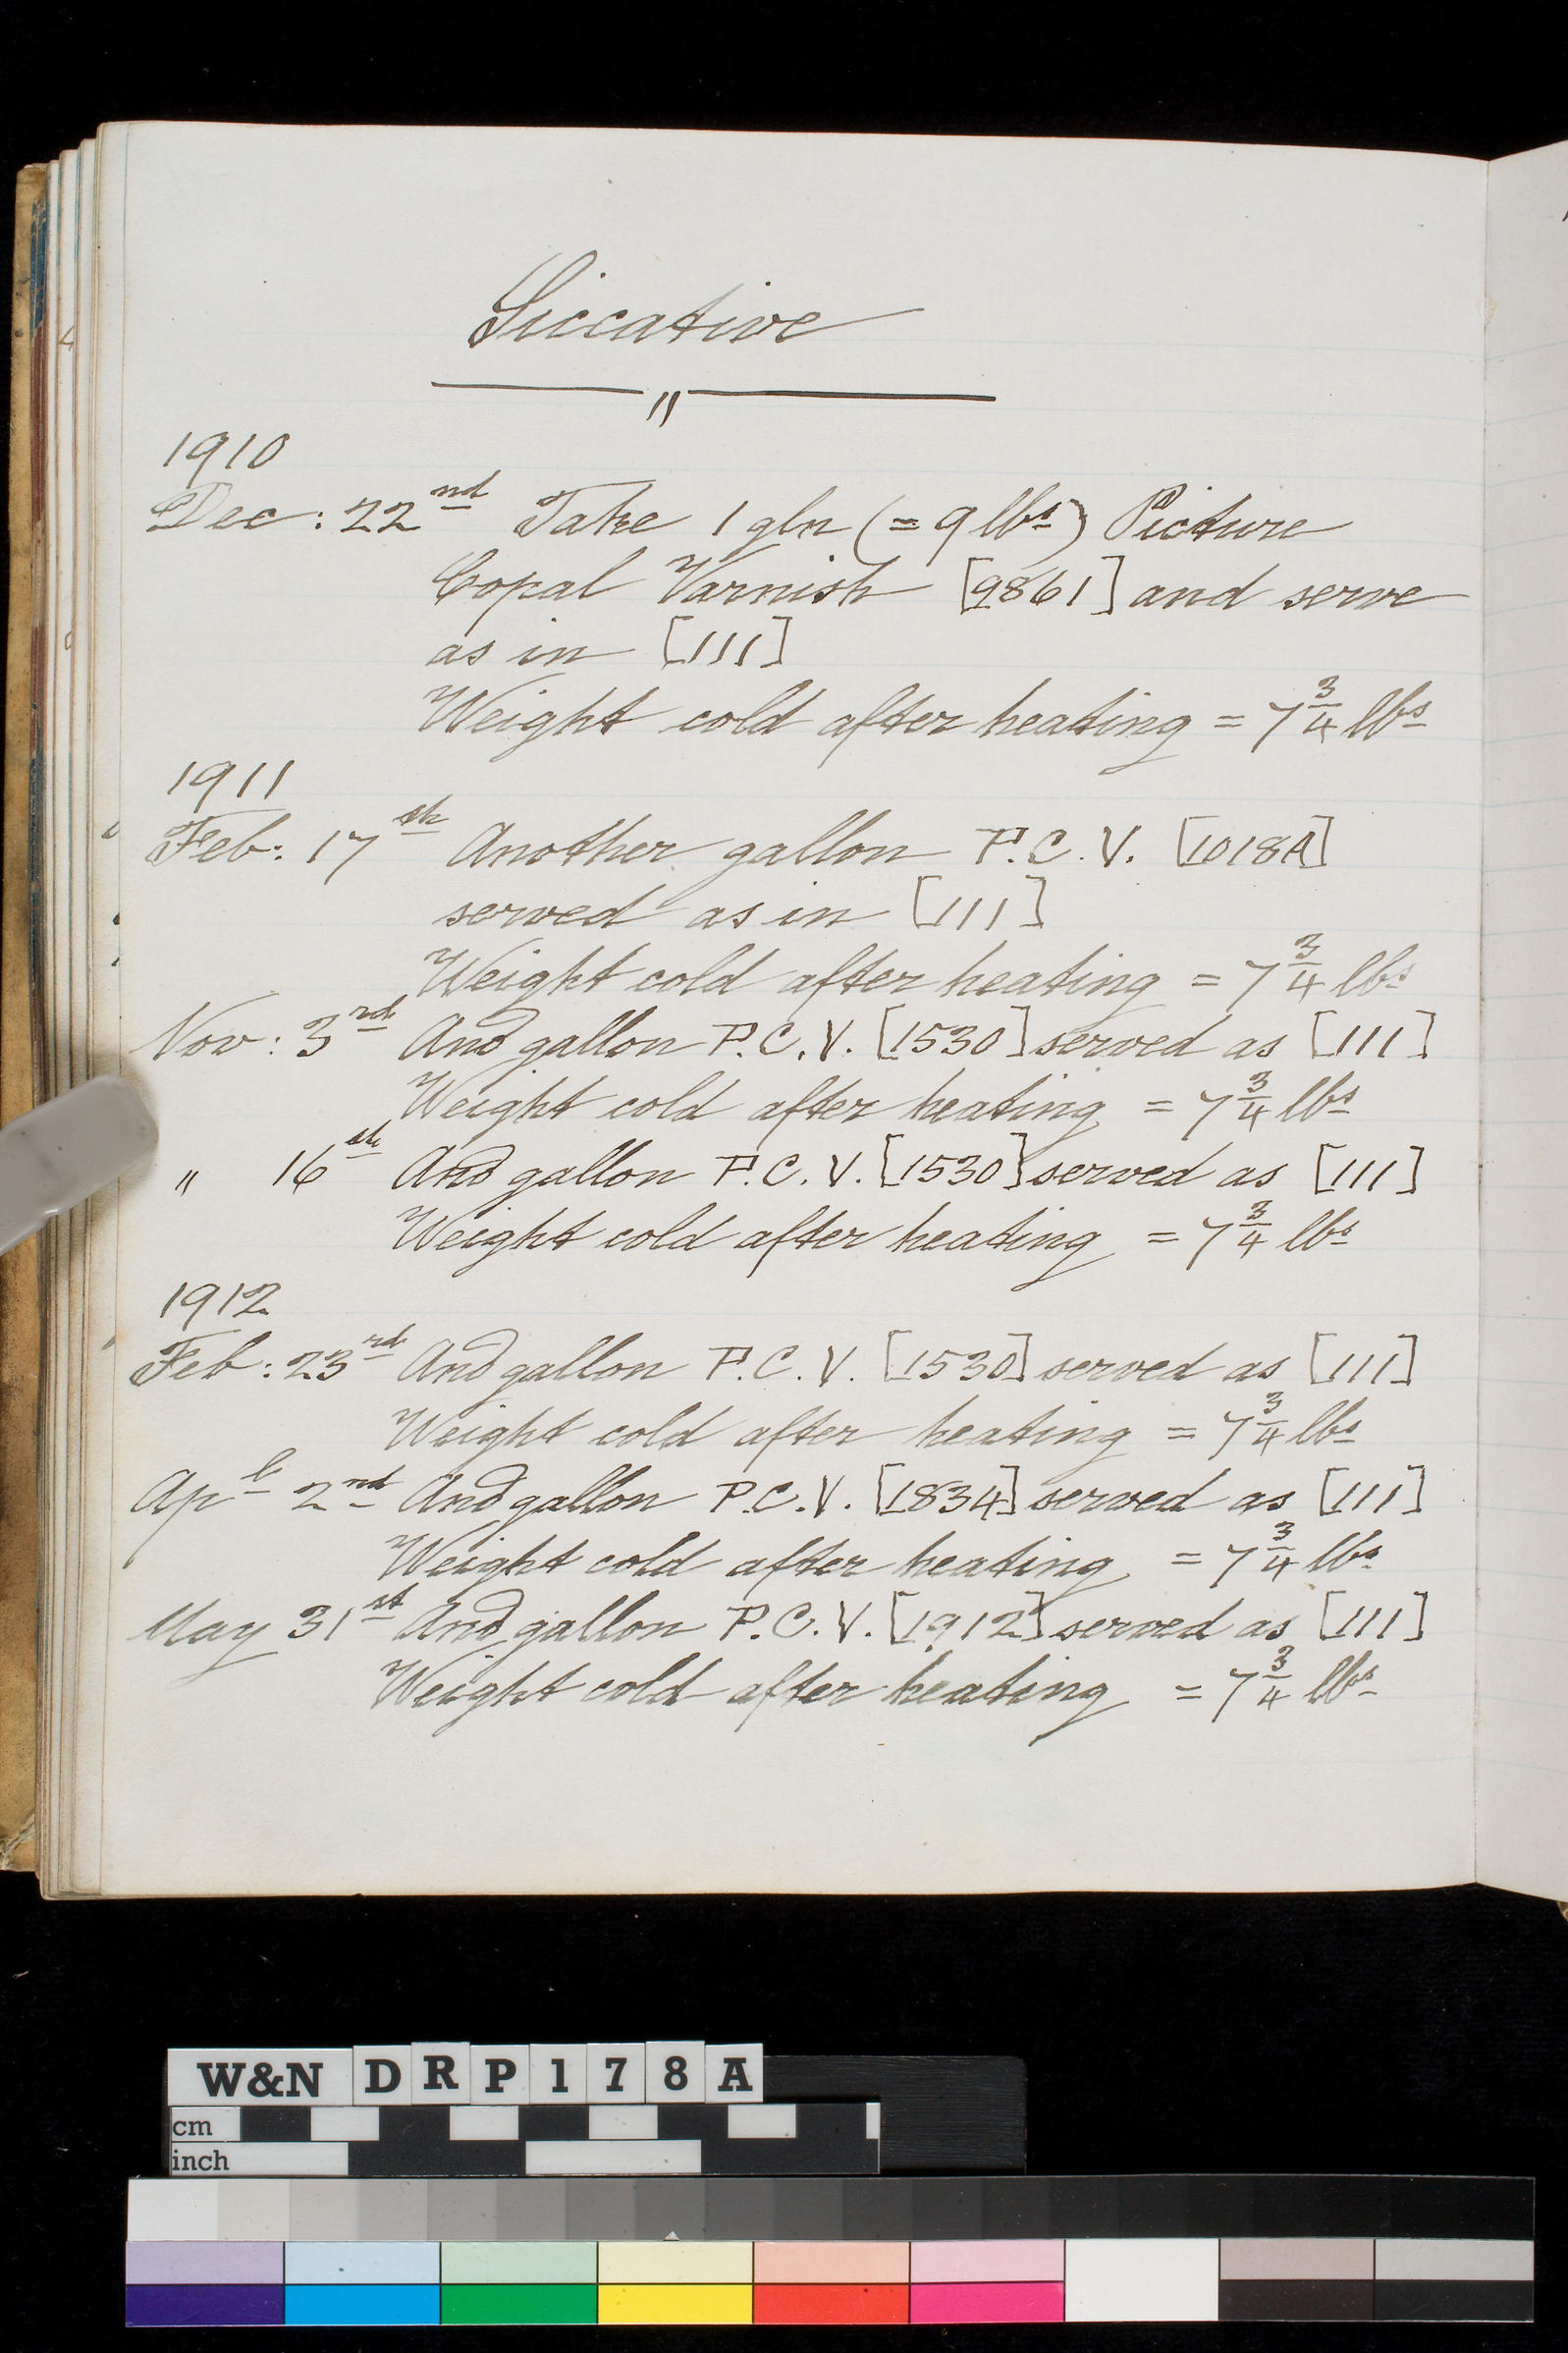 Siccative
"
1910
Dec: 22nd Take 1 gln (= 9 lbs) Picture
Copal Varnish [9861] and serve
as in [111]
Weight cold after heating = 7 3/4 lbs
1911
Feb: 17th Another gallon P.C.V. [1018A]
served as in [111]
Weight cold after heating = 7 3/4 lbs
Nov: 3rd Anо gallon P.C.V. [1530] served as [111]
Weight cold after heating = 7 3/4 lbs
" 16th Ano gallon P.C.V. [1530] served as [111]
Weight cold after heating = 7 3/4 lbs
1912
Feb: 23rd Ano gallon P.C.V. [1530] served as [111]
Weight cold after heating = 7 3/4 lbs
Apl 2nd Ano gallon P.C.V. [1834] served as [111]
Weight cold after heating = 7 3/4 lbs
May 31st Ano gallon P.C.V. [1912] served as [111]
Weight cold after heating = 7 3/4 lbs
W&N DRP178A
cm
inch